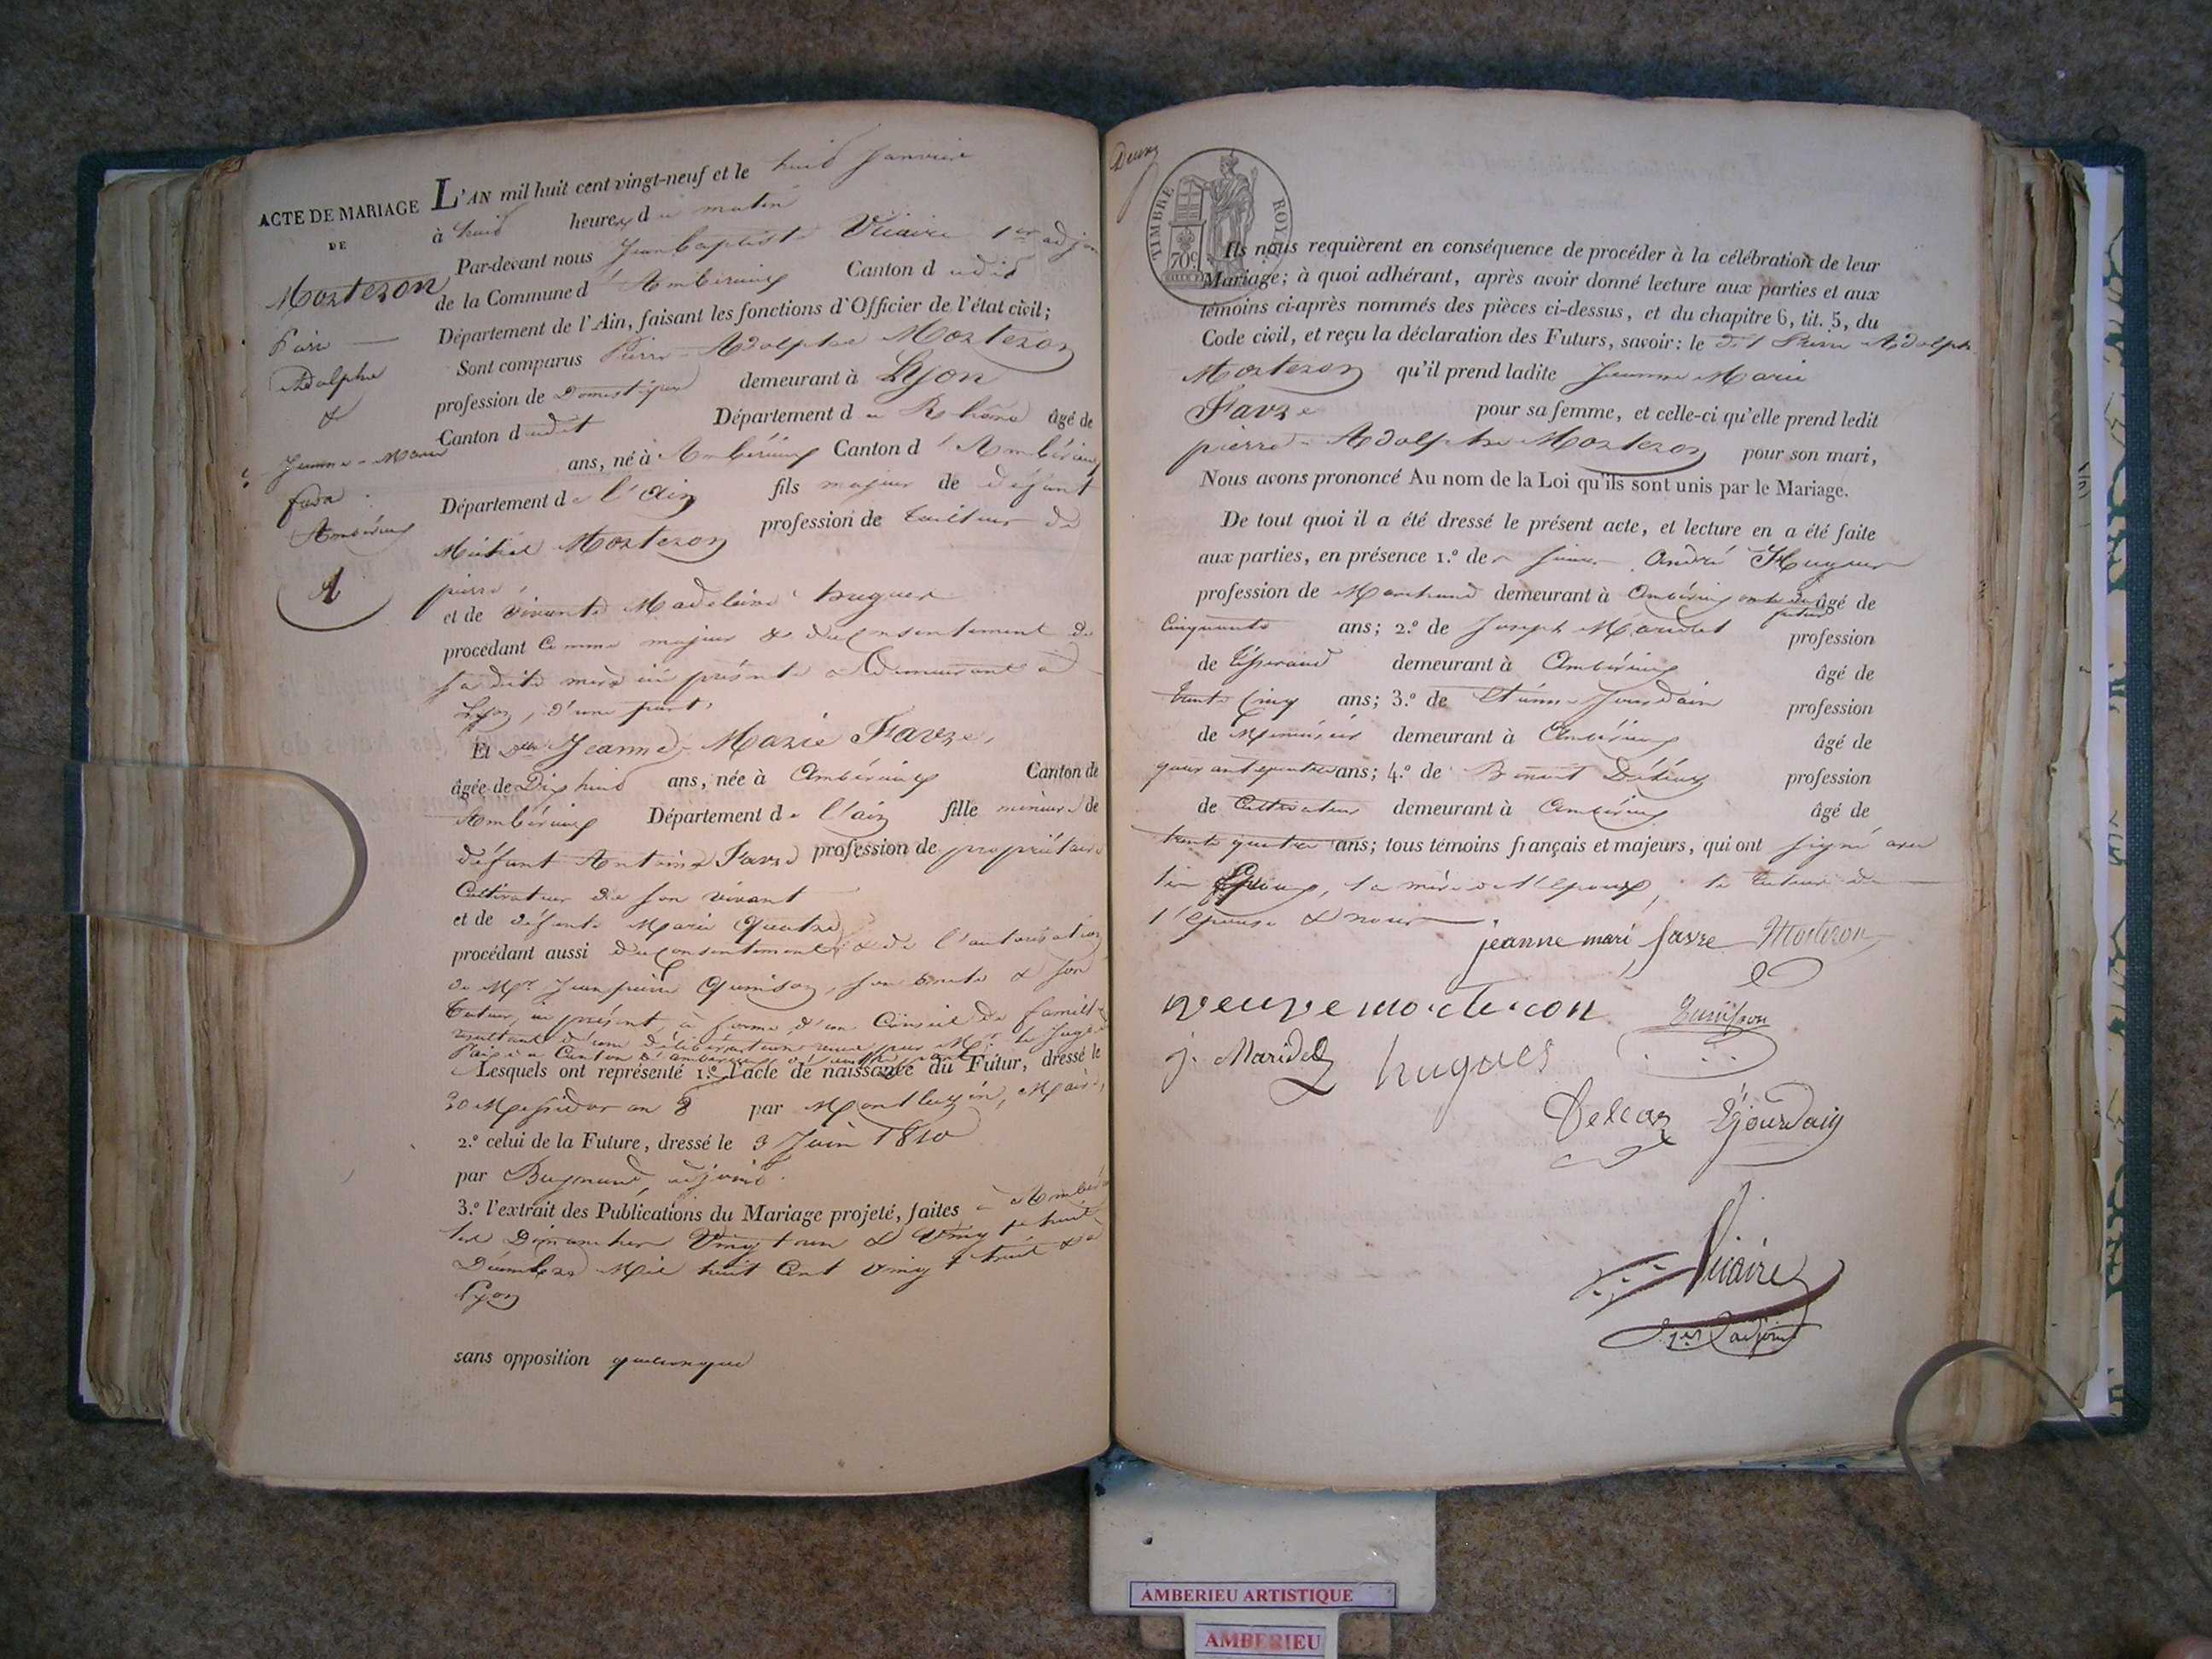 ACTE DE MARIAGE
DE
Morteron
Pierre
Adolphe
&
Jeanne-Marie
favre
Ambérieux
L'AN mil huit cent vingt-neuf et le huit Janvier
à huit heures du matin
Par-devant nous Jean baptiste Vicaire 1er adjoint
de la Commune d'Ambérieux Canton dudit
Département de l'Ain, faisant les fonctions d'Officier de l'état civil;
Sont comparus Pierre-Adolphe Morteron
profession de Domestique demeurant à Lyon
Canton dudit Département du Rhône âgé de
ans, né à Ambérieux Canton d'Ambérieux
Département de l'Ain fils majeur de défunt
Michel Morteron profession de tailleur de
pierre
et de vivante Madelaine hugues
procédant comme majeur & du consentement de
sa dite mère ici présente & demeurant à
Lyon, d'une part,
Et Dlle Jeanne-Marie Favre,
âgée de Dix huit ans, née à Ambérieux Canton de
Ambérieux Département de l'ain fille mineure de
défunt Antoine Favre profession de propriétaire
Cultivateur de son vivant
et de défunte Marie
procédant aussi du consentement & de l'autorisation
de Mr. Jean pierre son oncle & son
tuteur, ici présent, à forme d'un Conseil de famille
resultant d'une deliberation reçue par Mr. le Juge de
Paix du Canton d'ambérieux
Lesquels ont représenté 1.° l'acte de naissance du Futur, dressé le
30 Messidor an 8 par Montluzin, Maire,
2.° celui de la Future, dressé le 3 Juin 1810
par adjoint.
3.° l'extrait des Publications du Mariage projeté, faites à Ambérieux
les Dimanches Vingt un & Vingt huit
Décembre Mil huit Cent vingt huit & à
Lyon
sans opposition quelconque
Deux
TIMBRE ROYAL
70c
Ils nous requièrent en conséquence de procéder à la célébration de leur
Mariage; à quoi adhérant, après avoir donné lecture aux parties et aux
témoins ci-après nommés des pièces ci-dessus, et du chapitre 6, tit. 5, du
Code civil, et reçu la déclaration des Futurs, savoir: le dit Pierre Adolphe
Morteron qu'il prend ladite Jeanne Marie
Favre pour sa femme, et celle-ci qu'elle prend ledit
pierre-Adolphe Morteron pour son mari,
Nous avons prononcé Au nom de la Loi qu'ils sont unis par le Mariage.
De tout quoi il a été dressé le présent acte, et lecture en a été faite
aux parties, en présence 1.° de André Hugues
profession de Marchand demeurant à Ambérieux oncle du futur âgé de
Cinquante ans; 2.° de Joseph Maridet profession
de Tisserand demeurant à Ambérieux âgé de
trente Cinq ans; 3.° de Etienne Jourdain profession
de Menuisier demeurant à Ambérieux âgé de
quarante quatre ans; 4.° de Benoit profession
de Cultivateur demeurant à Ambérieux âgé de
trente quatre ans; tous témoins français et majeurs, qui ont signé avec
les Epoux, la mère de l'epoux, le tuteur de
l'épouse & nous.
jeanne mari favre Morteron
veuve morteron
j. Maridet hugues
Ejourdain
Vicaire
1er adjoint
AMBERIEU ARTISTIQUE
AMBERIEU